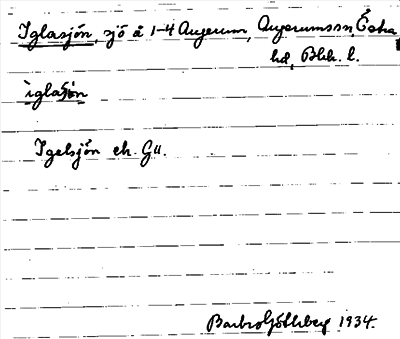 Iglasjön, sjö å 1-4 Augerum, Augerums sn, Östra
hd, Blek. l.
ìglaʃö̀n
Igelsjön ek. Gu.
Barbro Göthberg 1934.